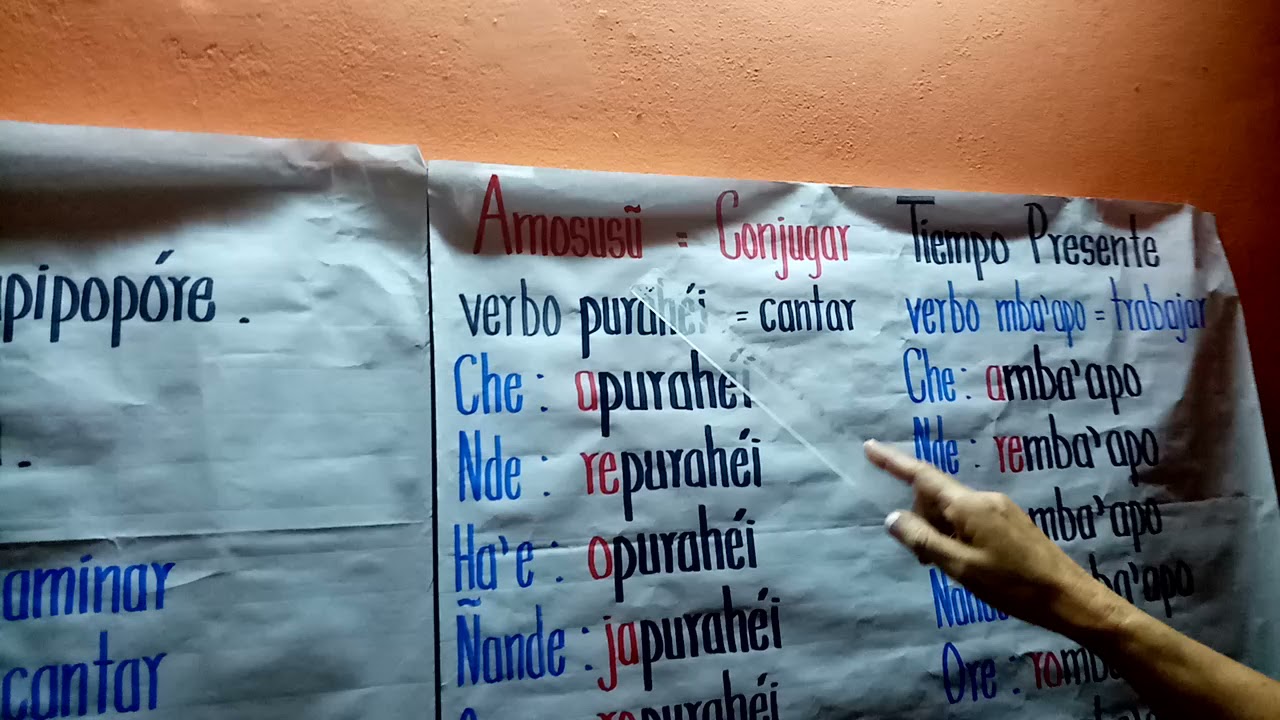 pipopóre .
.
aminar
cantar
Amosusũ = Conjugar
verbo purahéi = cantar
Che : apurahéi
Nde : repurahéi
Ha'e : opurahéi
Ñande : japurahéi
purahéi
Tiempo Presente
verbo mba'apo = trabajar
Che : amba'apo
Nde : remba'apo
mba'apo
ba'apo
Ore : romb